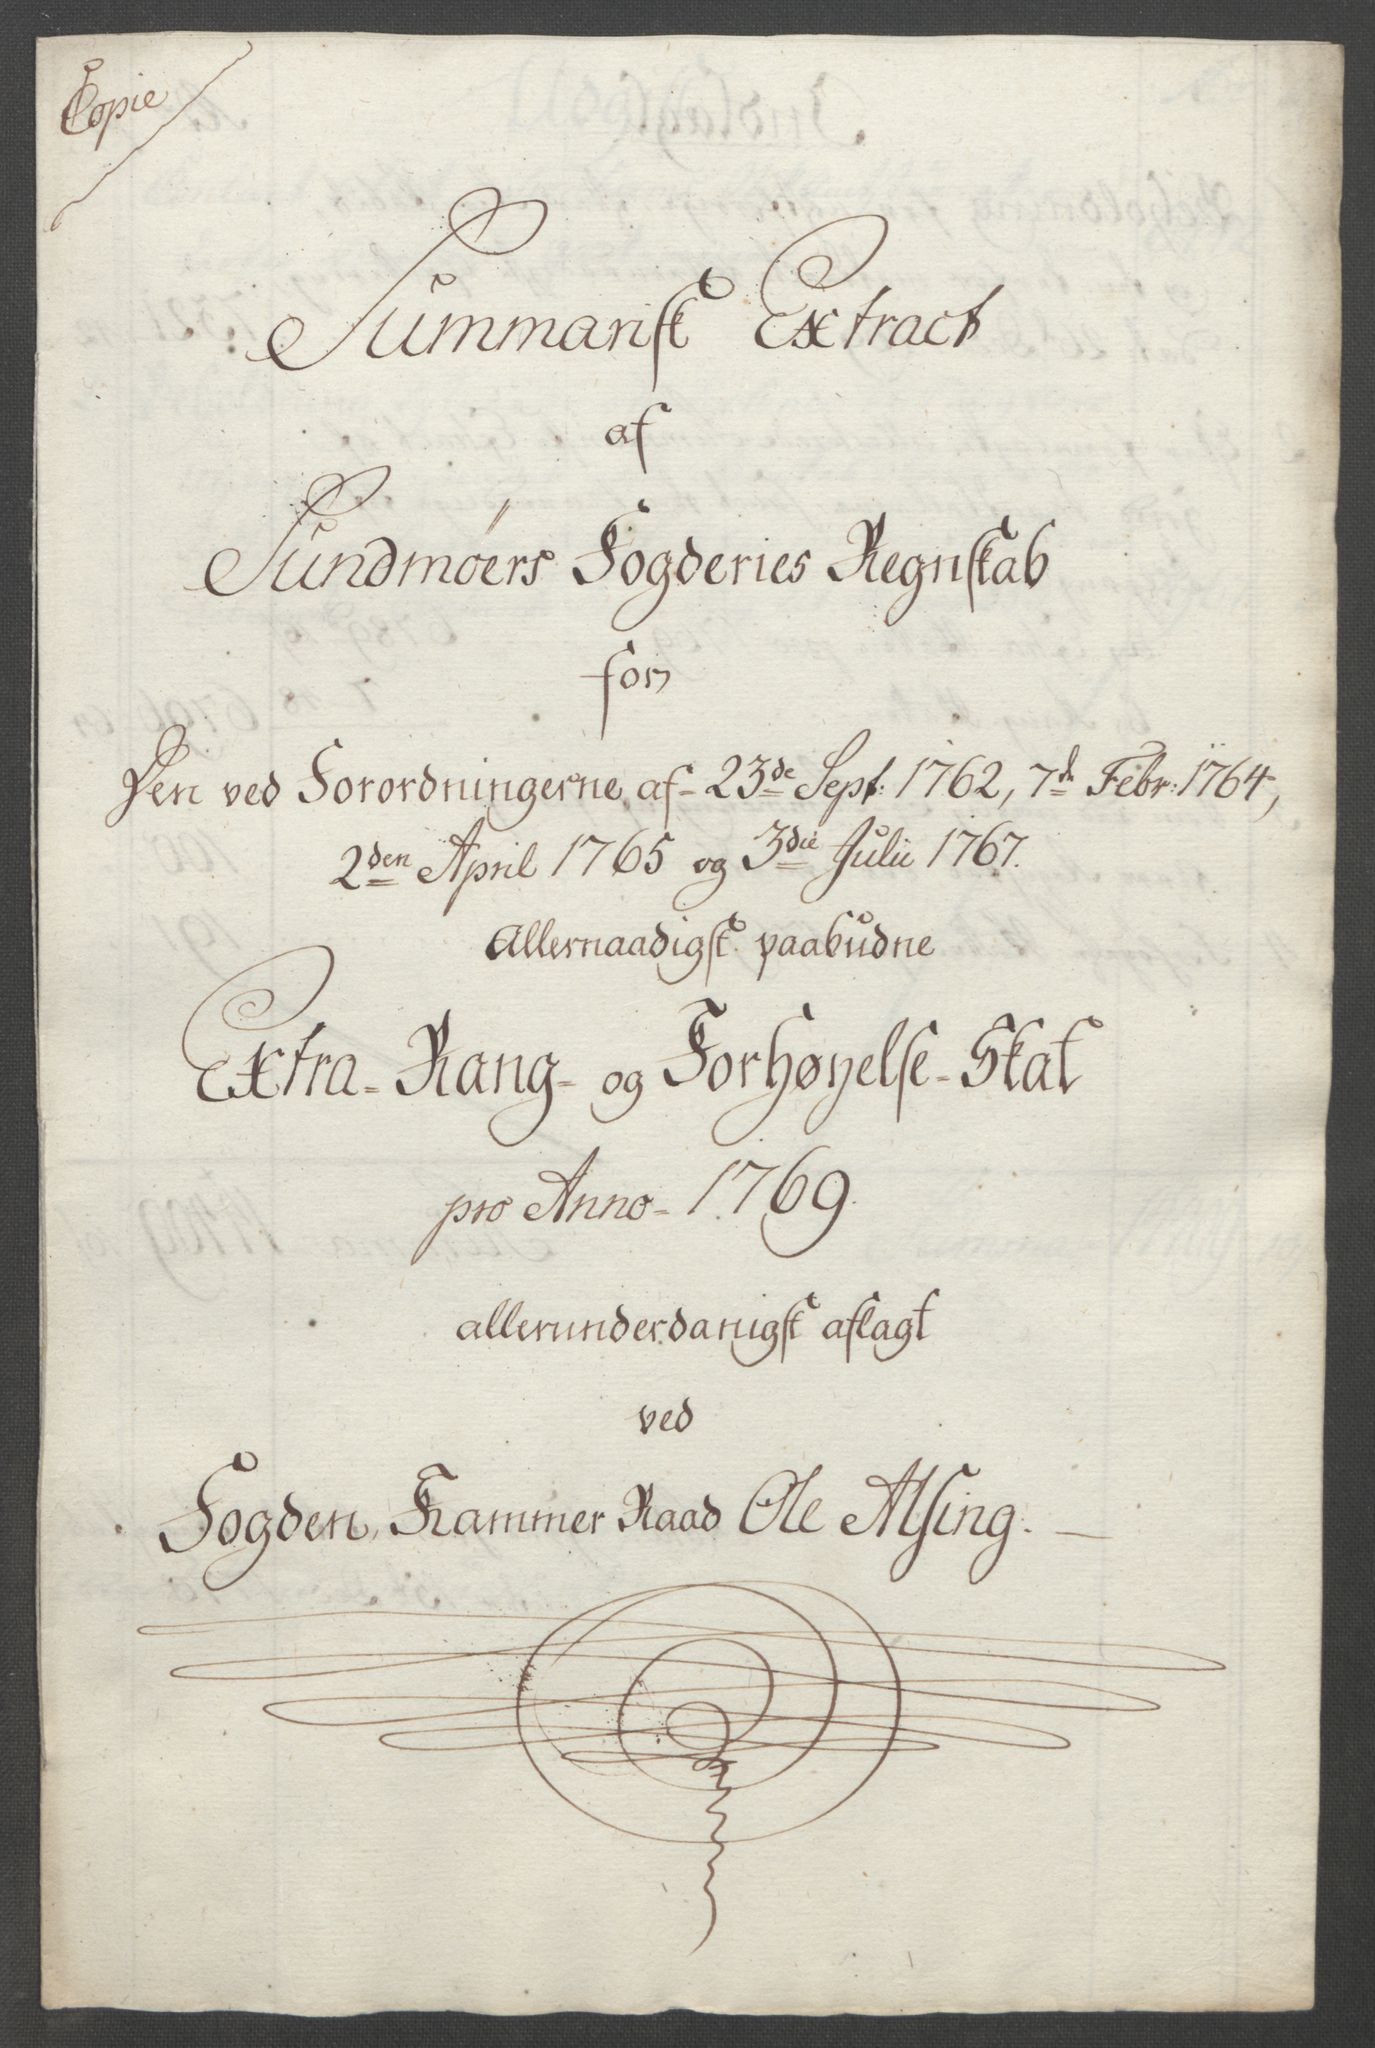 Copie
Summarisk Extract
af
Sundmöers Fogderies Regnskab
for
Den ved Forordningerne af 23de Sept: 1762, 7de Febr: 1764,
2den April 1765 og 3die Julii 1767.
Allernaadigst paabudne
Extra- Rang- og Forhøyelse-Skat
pro Anno- 1769.
allerunderdanigst aflagt
ved
Fogden, Kammer Raad Ole Alsing.